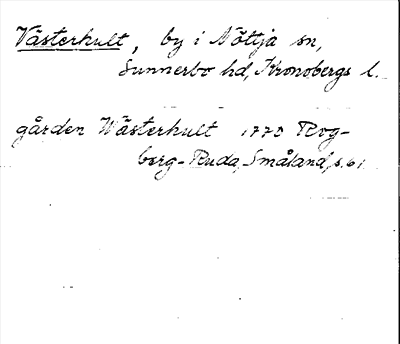 Västerhult, by i Nöttja sn,
Sunnerbo hd, Kronobergs l.
gården Wästerhult 1770 Rog-
berg-Ruda, Småland, s. 61